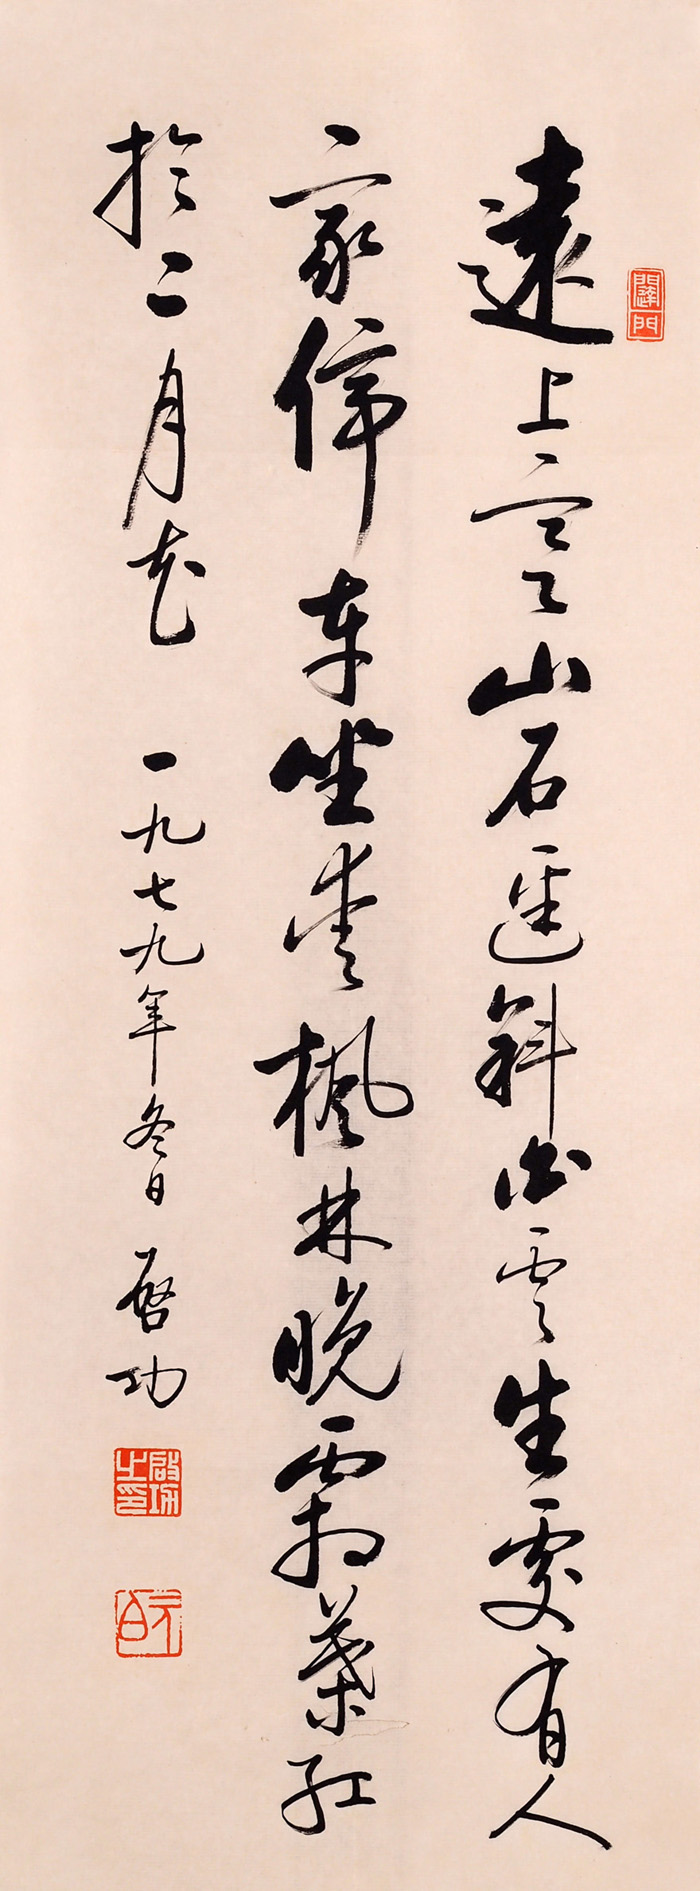 遠上寒山石逕斜白雲生處有人
家停車坐愛楓林晚霜葉紅
於二月花 一九七九年冬日 啓功
啟功之印
元白